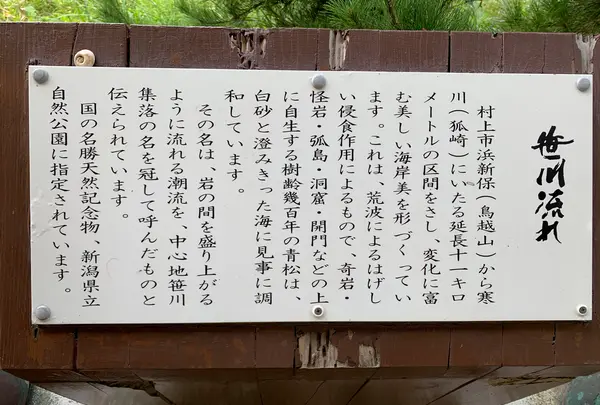 笹川流れ
村上市浜新保（鳥越山）から寒
川（狐崎）にいたる延長十一キロ
メートルの区間をさし、変化に富
む美しい海岸美を形づくってい
ます。これは、荒波によるはげし
い侵食作用によるもので、奇岩・
怪岩・孤島・洞窟・開門などの上
に自生する樹齢幾百年の青松は、
白砂と澄みきった海に見事に調
和しています。
その名は、岩の間を盛り上がる
ように流れる潮流を、中心地笹川
集落の名を冠して呼んだものと
伝えられています。
国の名勝天然記念物、新潟県立
自然公園に指定されています。